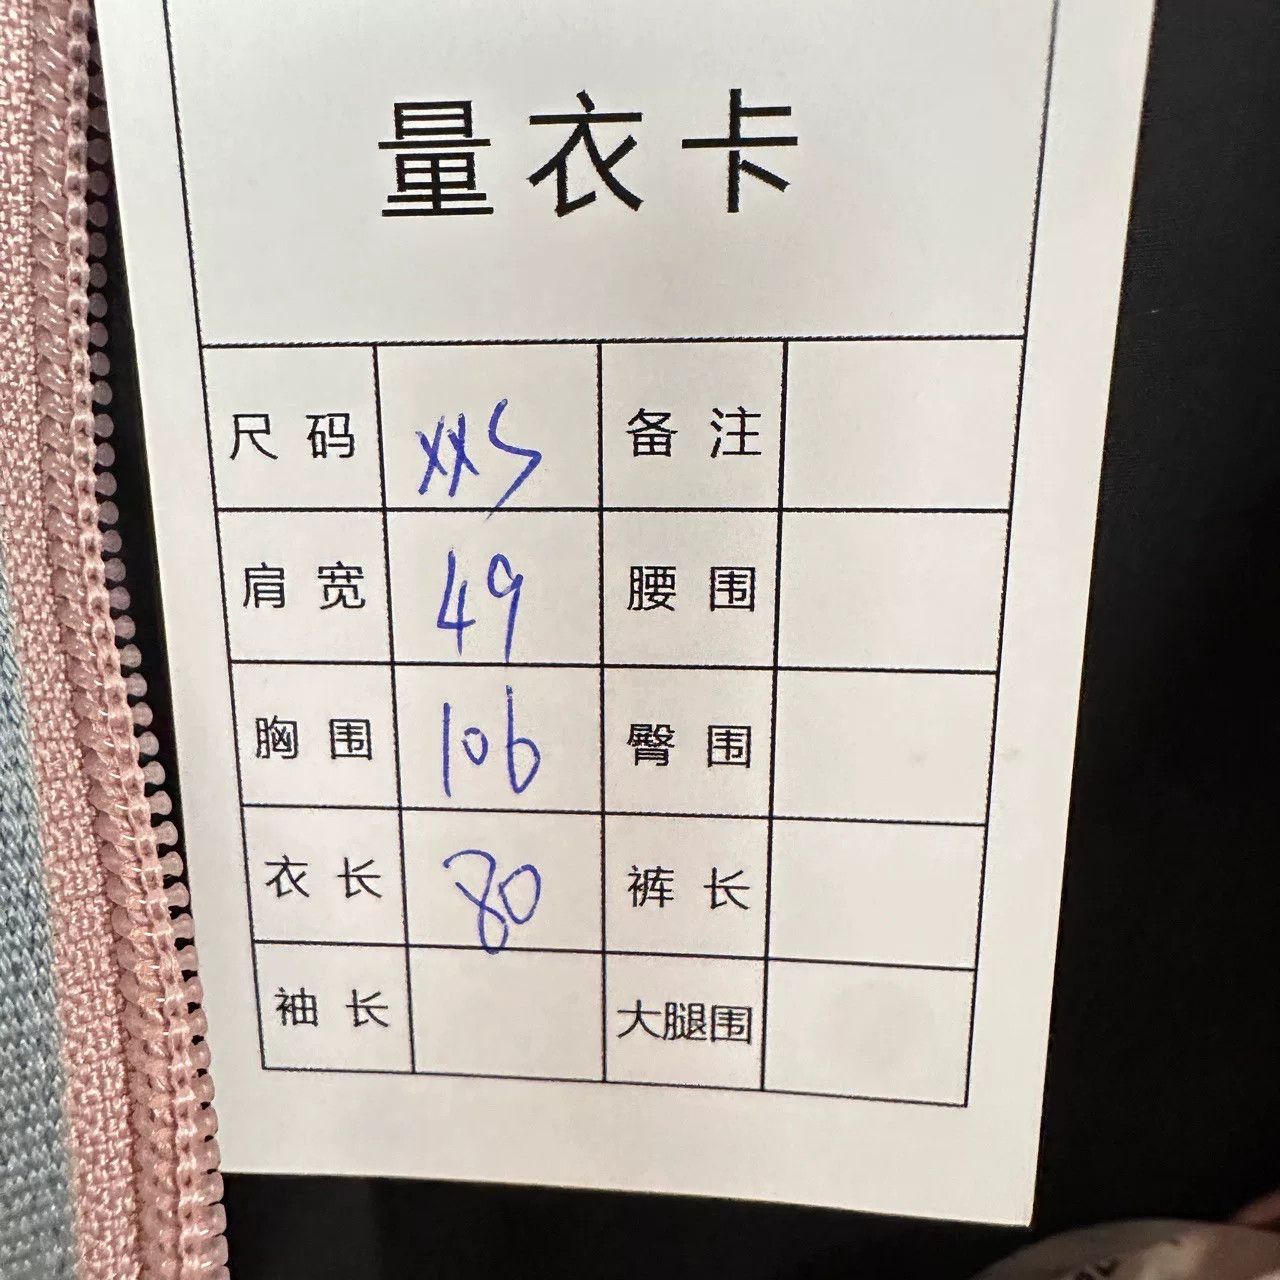 量衣卡
尺码 XXS 备注
肩宽 49 腰围
胸围 106 臀围
衣长 80 裤长
袖长 大腿围